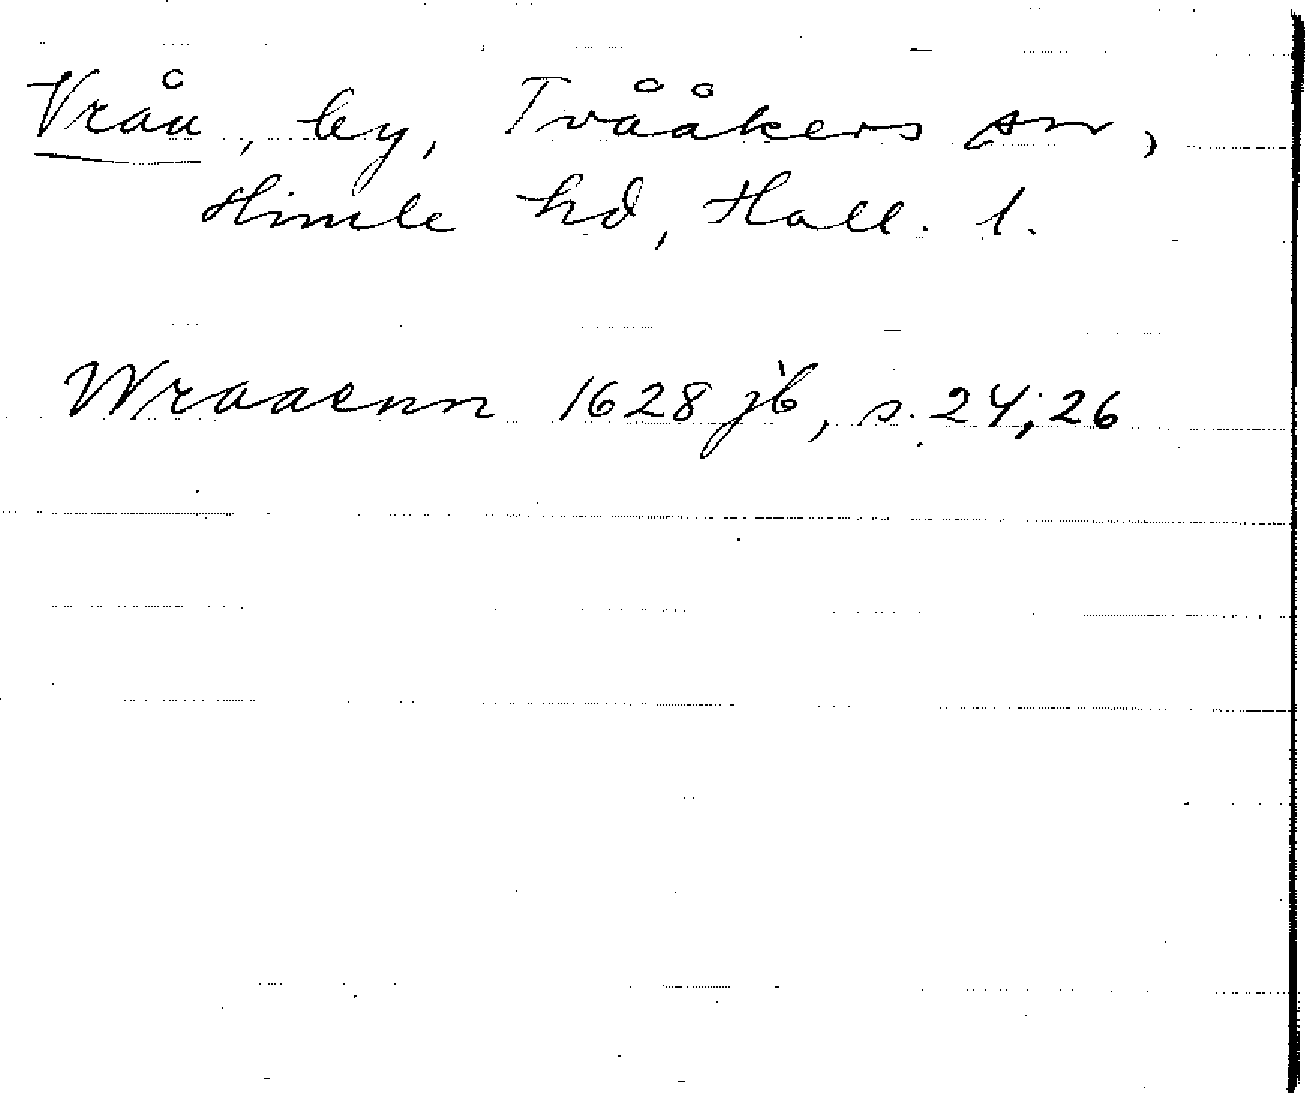 Vråa, by, Tvååkers sn,
Himle hd, Hall. l.
Wraaenn 1628 jb, s. 24; 26